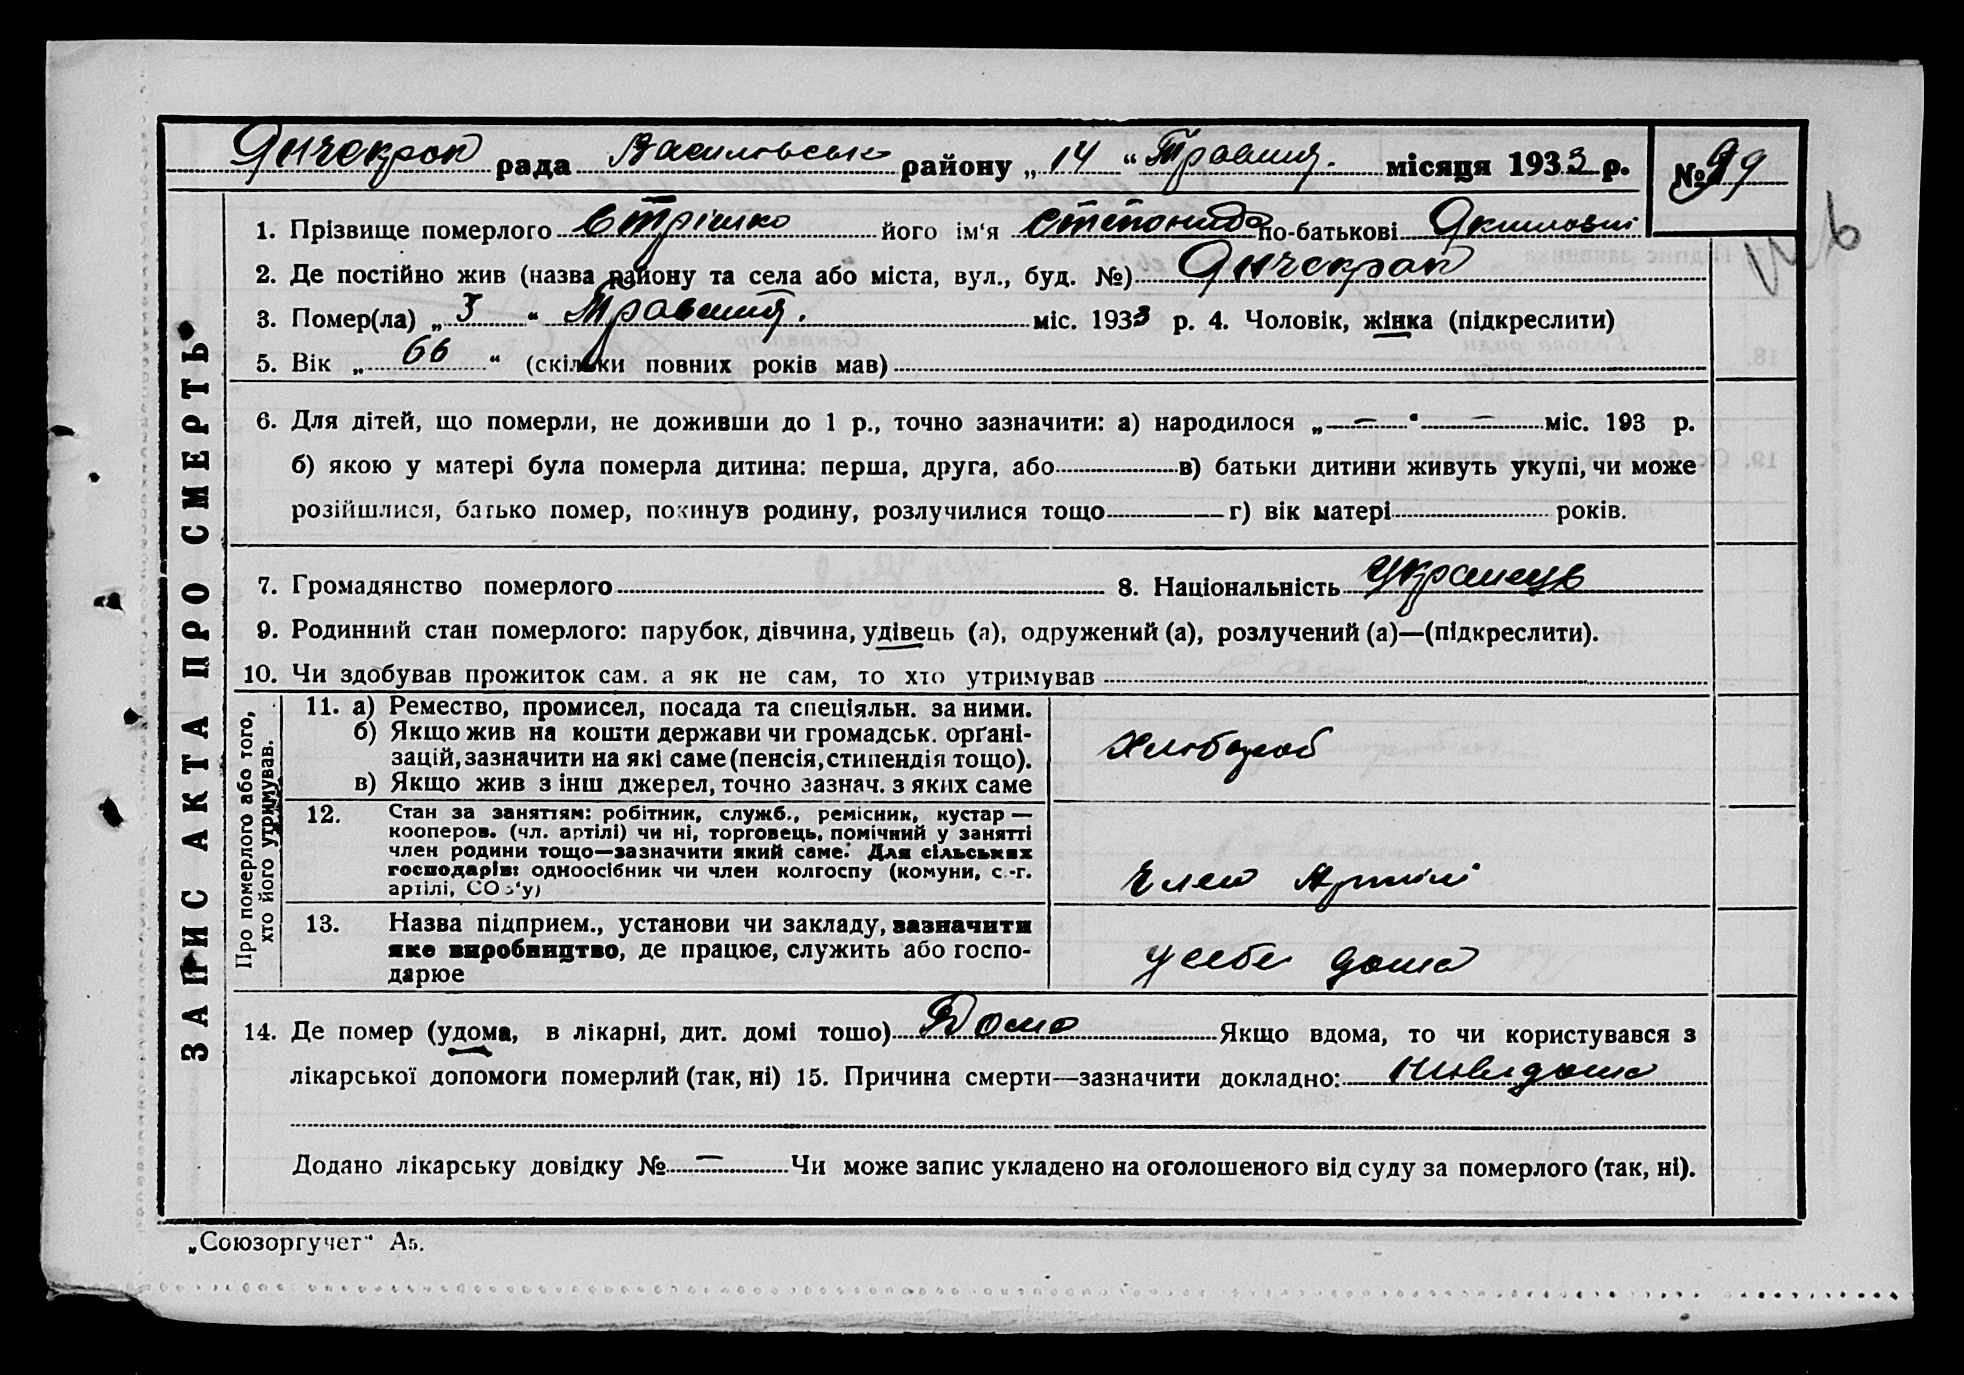 Днчекрак рада Василовськ району „ 14 “ Травня. місяця 1933 р. № 99
ЗАПИС АКТА ПРО СМЕРТЬ
1. Прізвище померлого Стрішко його ім'я Степонида по-батькові
2. Де постійно жив (назва району та села або міста, вул., буд. №) Днчекрак
3. Помер(ла) „ 3 “ Травня. міс. 1933 р. 4. Чоловік, жінка (підкреслити)
5. Вік „ 66 “ (скільки повних років мав)
6. Для дітей, що померли, не доживши до 1 р., точно зазначити: а) народилося „ — “ — міс. 193 р.
б) якою у матері була померла дитина: перша, друга, або в) батьки дитини живуть укупі, чи може
розійшлися, батько помер, покинув родину, розлучилися тощо г) вік матері років.
7. Громадянство померлого 8. Національність Украінець
9. Родинний стан померлого: парубок, дівчина, удівець (а), одружений (а), розлучений (а)—(підкреслити).
10. Чи здобував прожиток сам, а як не сам, то хто утримував
Про померлого або того,
хто його утримував.
11. а) Ремество, промисел, посада та спеціяльн. за ними.
б) Якщо жив на кошти держави чи громадськ. орґані-
зацій, зазначити на які саме (пенсія, стипендія тощо).
в) Якщо жив з інш джерел, точно зазнач. з яких саме
Хлібороб
12. Стан за заняттям: робітник, служб., ремісник, кустар —
кооперов. (чл. артілі) чи ні, торговець, помічний у занятті
член родини тощо—зазначити який саме. Для сільських
господарів: одноосібник чи член колгоспу (комуни, с.-г.
артілі, СОЗ'у)
Член Артілі
13. Назва підприєм., установи чи закладу, зазначити
яке виробництво, де працює, служить або госпо-
дарює
усебе дома
14. Де помер (удома, в лікарні, дит. домі тощо) Дома Якщо вдома, то чи користувався з
лікарської допомоги померлий (так, ні) 15. Причина смерти—зазначити докладно:
Додано лікарську довідку № — Чи може запис укладено на оголошеного від суду за померлого (так, ні).
„Союзоргучет“ А5.